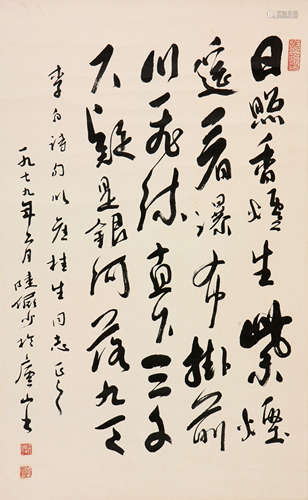 日照香爐生紫煙
遙看瀑布掛前
川飛流直下三千
尺疑是銀河落九天
李白詩句以應桂生同志正之
一九七九年月陸儼少於廬山